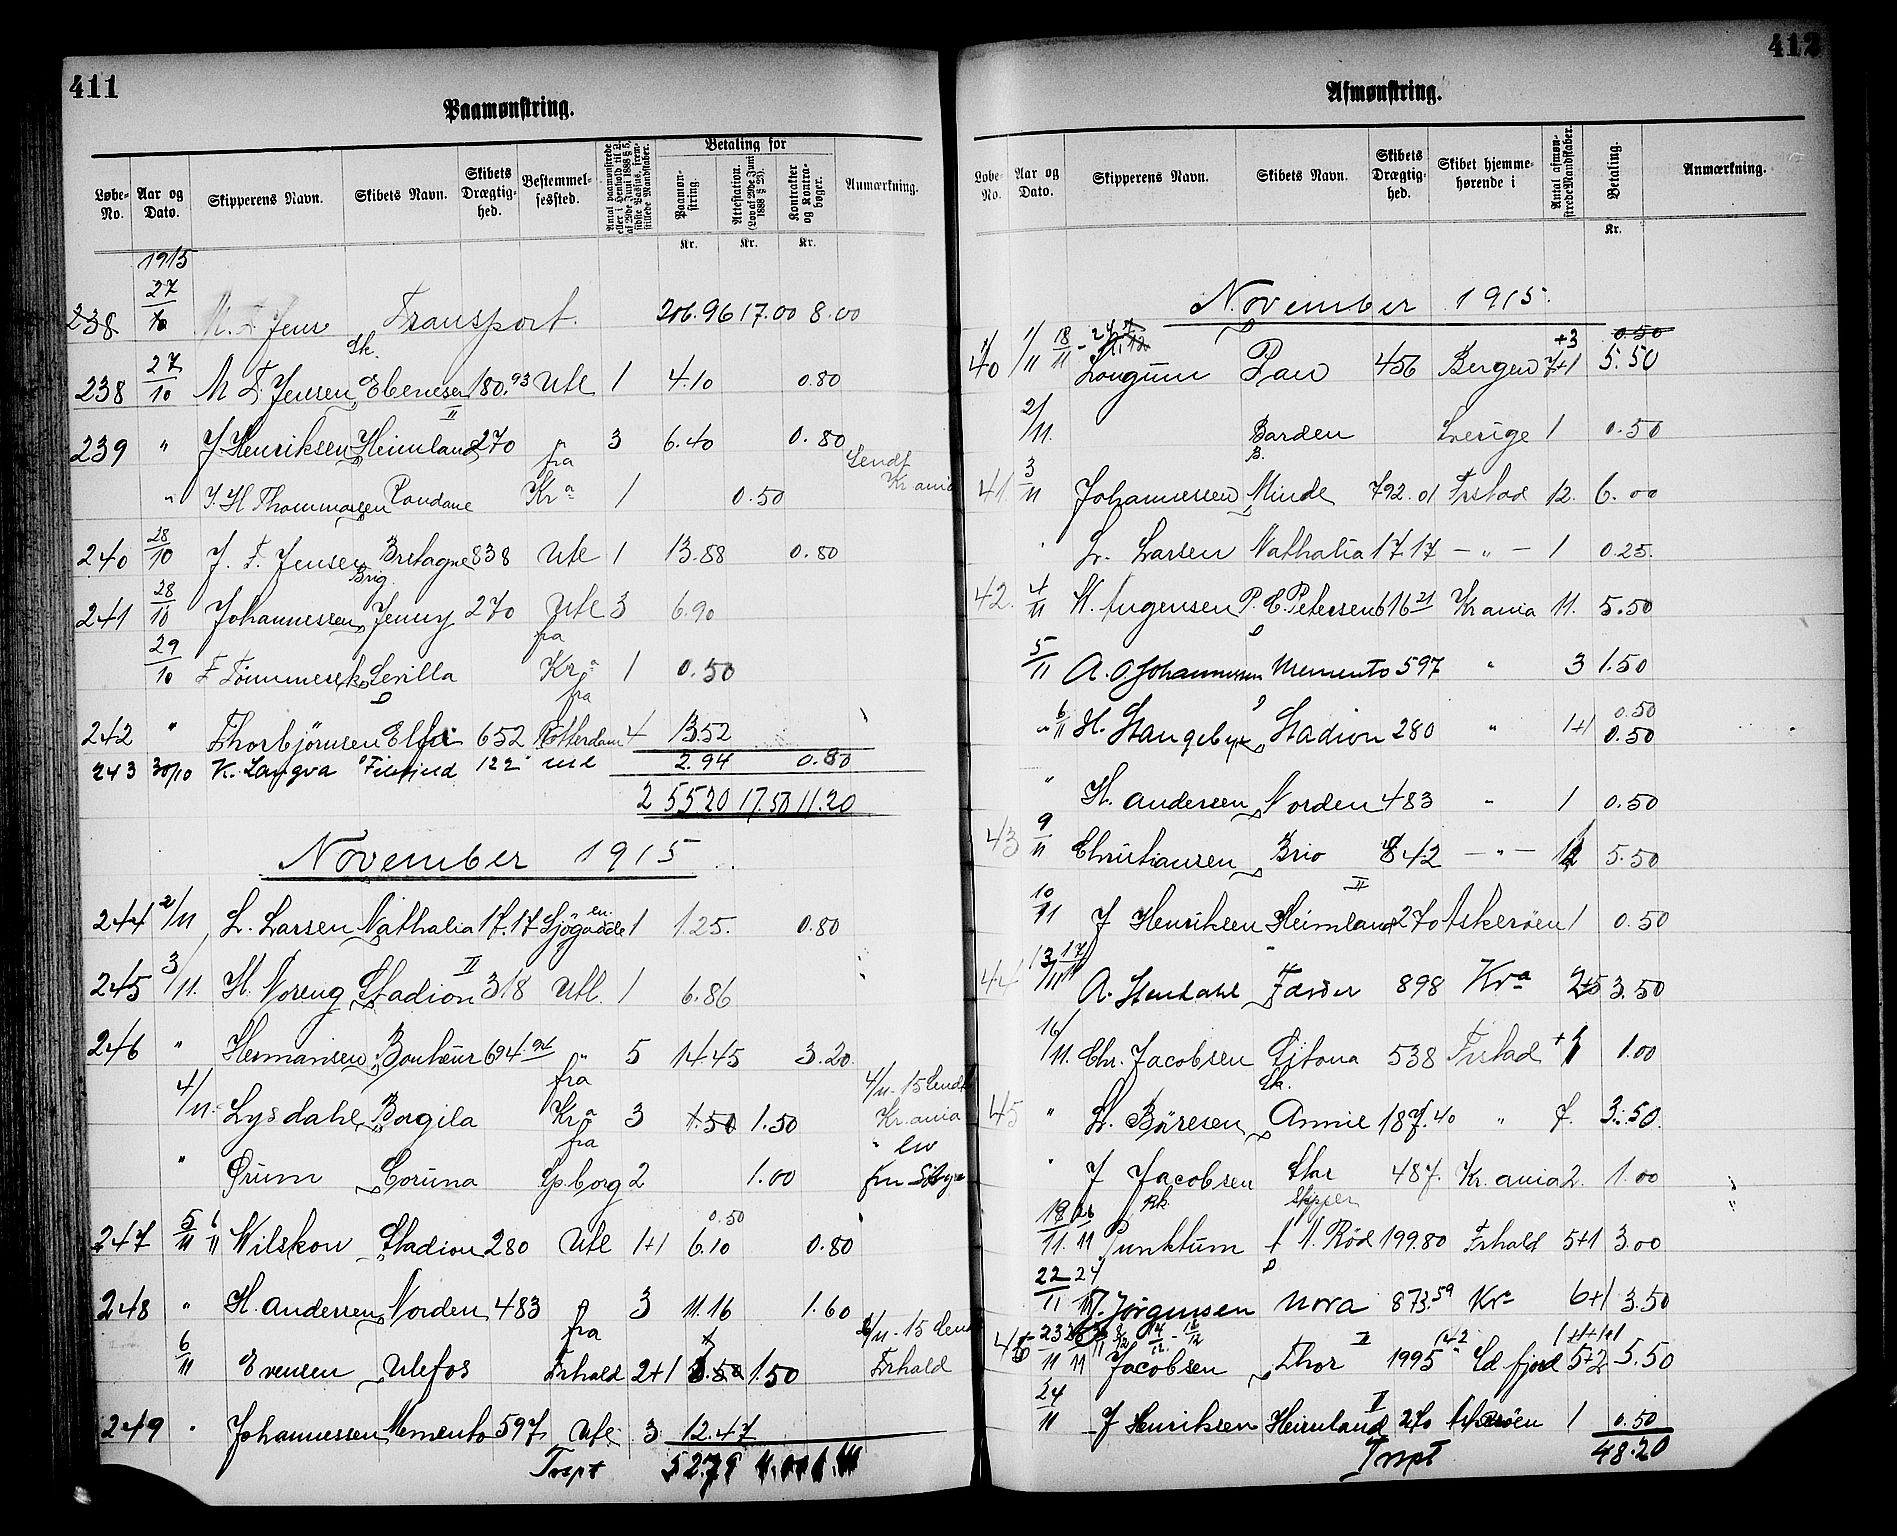 411
Paamønstring.
Løbe-No. Aar og Dato. Skipperens Navn. Skibets Navn. Skibets Drægtighed. Bestemmelsessted. Antal paamønstrede eller i Henhold til af 29de Juni 1888 § 5, sidste Passus, fremstillede Mandskaber. Betaling for Anmærkning.
Paamønstring. Attestation. (Lov af 29de Juni 1888 § 25). Kontrakter og Kontrabøger.
Kr. Kr. Kr.
1915
238 27/10 M. F. Jens Transport. 206.96 17.00 8.00
Sk.
238 27/10 M F. Jensen Ebeneser 180.93 Utl 1 4.10 0.80
II
239 " J Henriksen Heimland 270 " 3 6.40 0.80
fra Sendt
" J. H Thommassen Randane Kra 1 0.50 Kr ania
240 28/10 J. F. Jensen Bretagne 838 Utl 1 13.88 0.80
Brig.
241 28/10 Johannessen Jenny 270 Utl 3 6.90
fra
29/10 F Tømmerek Sevilla Kra 1 0.50
D fra
242 " Thorbjørnsen 652 Rotterdam 4 13.52
243 30/10 K. Langva 122 utl 2.94 0.80
255 20 17.50 11.20
November 1915
244 2/11 L. Larsen Nathalia 17.17 1 1.25. 0.80
II
245 3/11. H. Noreng Stadion 318 Utl. 1 6.86
246 " Hermansen Bonheur 694.94 " 5 14.45 3.20
fra 4/11-15 Sendt
4/11. Lysdahl Borgila Kra 3 1.50 1.50 Kr. ania
fra "
" Ørum Coruna Sp.borg 2 1.00
0.50
247 5/11 6/11 Wilskow Stadion 280 Utl 1+1 6.10 0.80
248 " H. Andersen Norden 483 " 3 11.16 1.60
fra
6/11 Evensen Ulefos Frhald 2+1 1.50 Frhald
249 " Johannessen Memento 597 Utl 3 12.47
Trspt 52.79
412
Afmønstring.
Løbe-No. Aar og Dato. Skipperens Navn. Skibets Navn. Skibets Drægtighed. Skibet hjemmehørende i Antal afmønstrede Mandskaber. Betaling. Anmærkning.
Kr.
November 1915.
+3 0.50
40 1/11 18/11 Longum Pan 456 Bergen 7+1 5.50
2/11. Barden Sverige 1 0.50
B.
41. 3/11 Johannessen Minde 792.01 Frstad 12. 6.00
L. Larsen Nathalia 17.17 - " - 1 0.25.
42. 4/11 H. Augensen P. C. Petersen 616.21 Kr ania 11. 5.50
D
5/11 A. O Johannessen Memento 597 " 3 1.50
0.50
" 6/11 H. Stangebye Stadion 280 " 1+1 0.50
" H. Andersen Norden 483 " 1 0.50
43 9/11 Christiansen Brio 842 - " - 5.50
II
10/11 J Henriksen Heimland 270 Askerøen 1 0.50
44 13/11 17/11 A. Stendahl Færder 898 Kra 2+5 3.50
16/11. Chr. Jacobsen 538 Frstad 1.00
Sk.
45 " L. Børesen Annie 187.40 " 7. 3.50
" J Jacobsen Star 487. Kr. ania 2. 1.00
Sk. Skipper
18/11. 26/11 Punktum M. Rød 199.80 Frhald 5+1 3.00
D
22/11 24/11 Jørgensen Nora 873.59 Kra 6+1 3.50
II
46 23/11 Jacobsen Thor 1995 5+2 5.50
II
24/11 J Henriksen Heimland 270 Askerøen 1 0.50
Trspt 48.20